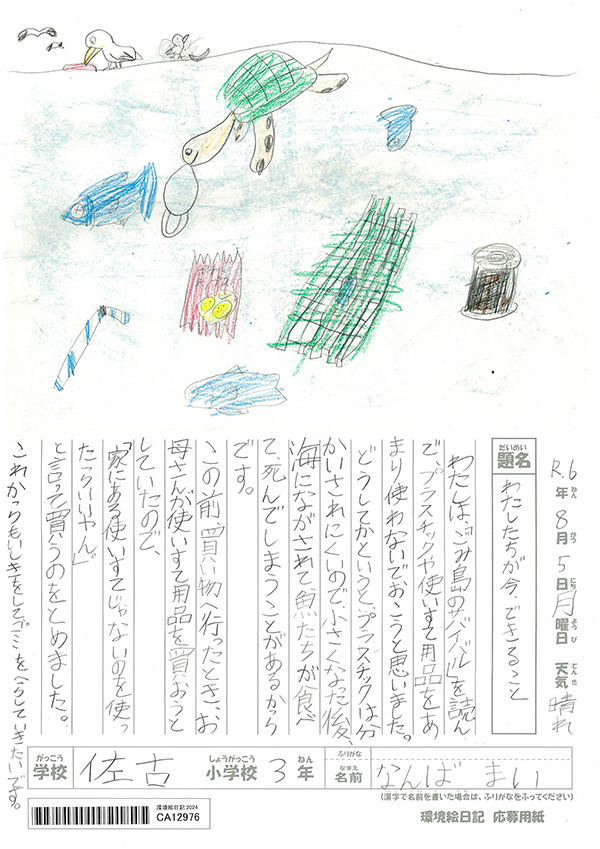 R.6年8月5日月曜日 天気 晴れ
ねん がつ にち ようび てんき
だいめい
題名
わたしたちが今、できること
わたしは、「ごみ島のサバイバル」を読ん
で、プラスチックや使いすて用品をあ
まり使わないでおこうと思いました。
どうしてかというと、プラスチックは分
かいされにくいので、小さくなった後
海にながされて魚たちが食べ
て、死んでしまうことがあるから
です。
この前、買い物へ行ったとき、お
母さんが使いすて用品を買おうと
していたので、
「家にある使いすてじゃないのを使っ
たらいいやん。」
と言って買うのをとめました。
これからもいしきをしてゴミをへらしていきたいです。
がっこう しょうがっこう ねん
学校 佐古 小学校 3年
ふりがな
なまえ
名前 なんば まい
(漢字で名前を書いた場合は、ふりがなをふってください)
環境絵日記 2024
CA12976
環境絵日記 応募用紙